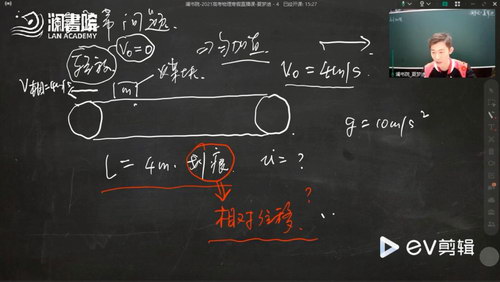 澜书院-2021高考物理寒假直播课-夏梦迪 - 4 已经开课: 15:27
瀾書院
LAN ACADEMY
第 问题.
轻放 V₀=0
→ 匀加速
V₀=4m/s
V相=4m/s
m
煤块
g=10m/s²
L=4m. 划痕 u=?
相对位移. ?
澜书院_夏梦迪
ev剪辑